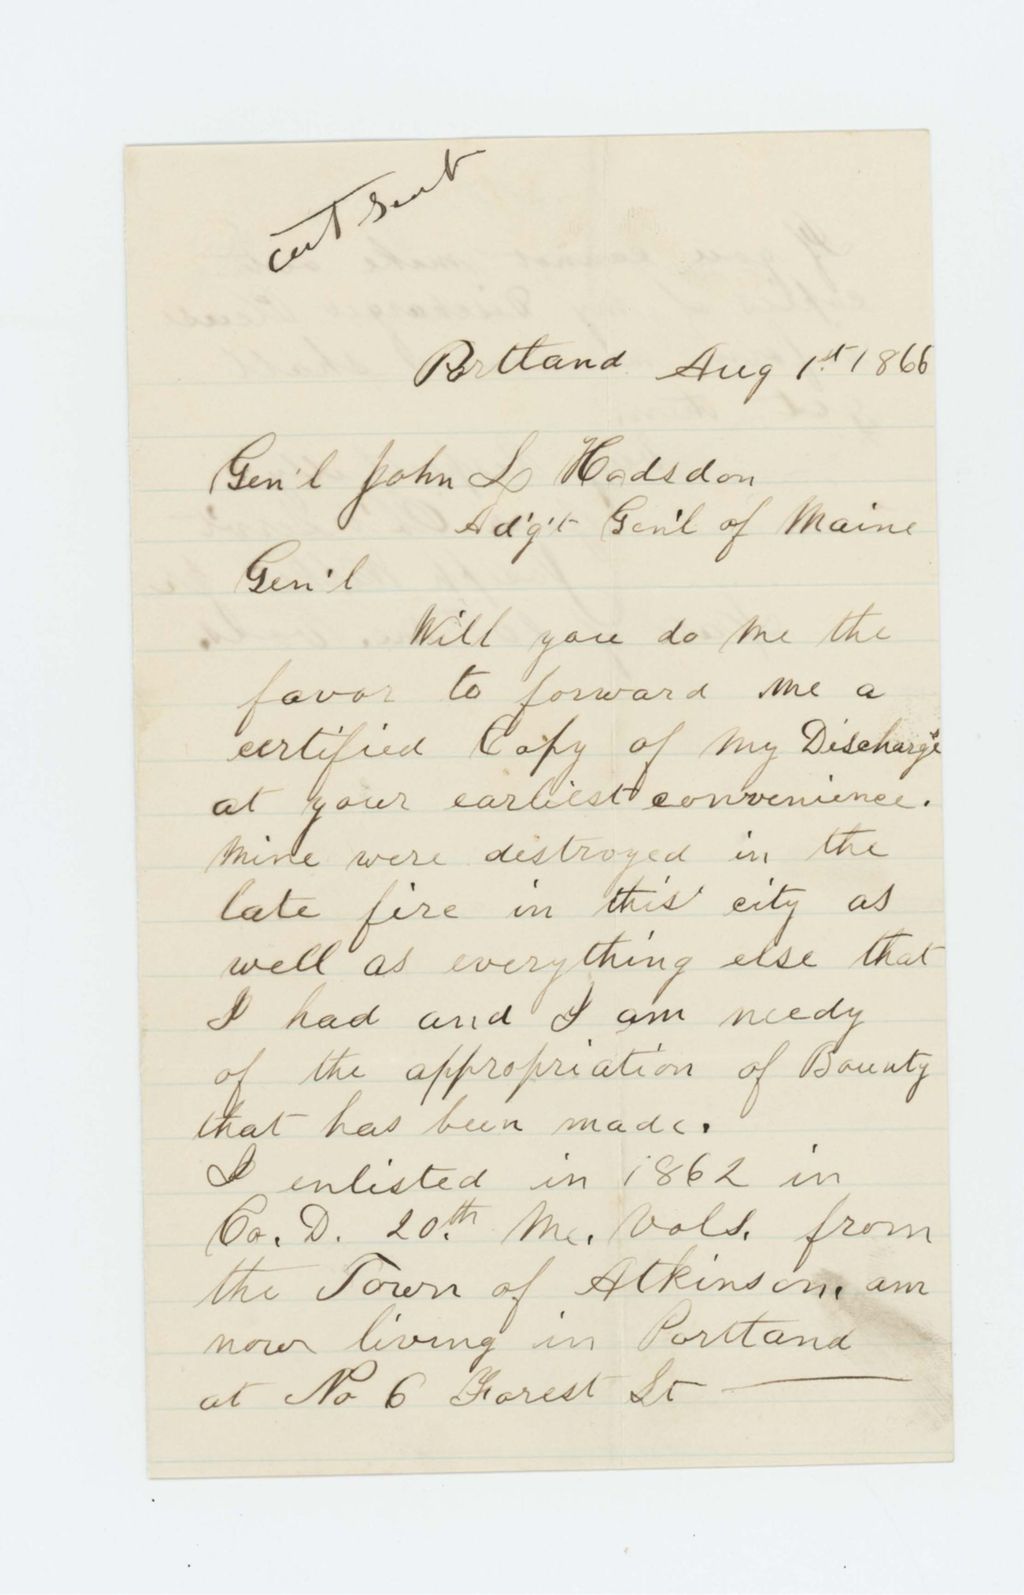 cert sent
Portland Aug 1st 1866
Gen'l John L Hodsdon
Ad'g't Gen'l of Maine
Gen'l
Will you do me the
favor to forward me a
certified Copy of my Discharge
at your earliest convenience.
Mine were destroyed in the
late fire in this city as
well as everything else that
I had and I am needy
of the appropriation of Bounty
that has been made.
I enlisted in 1862 in
Co. D. 20th Me. Vols. from
the Town of Atkinson, am
now living in Portland
at No 6 Forest St —